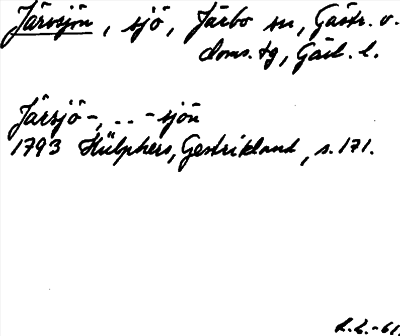 Järvsjön, sjö, Järbo sn, Gästr. v.
doms. tg, Gävl. l.
Järsjö-, .. -sjön
1793 Hülphers, Gestrikland, s. 171.
L.L. -61.